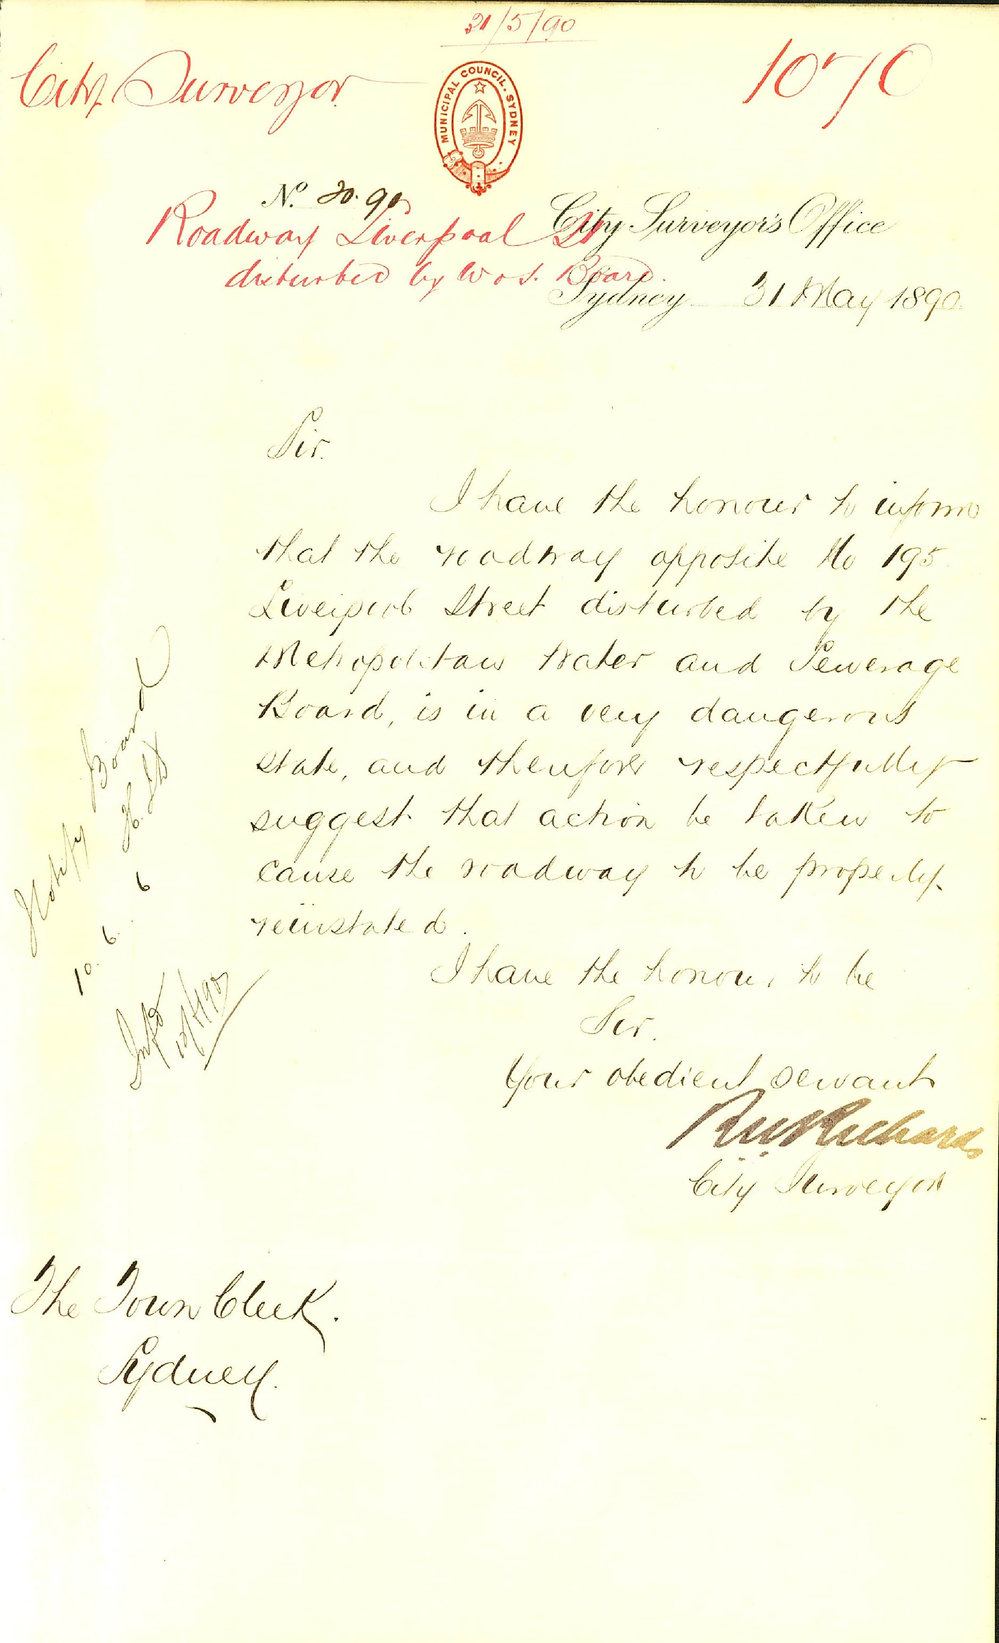 31/5/90
City Surveyor
1070
MUNICIPAL COUNCIL. SYDNEY
No. 20.90
Roadway Liverpool St
disturbed by W & S. Board.
City Surveyor's Office
Sydney 31 May 1890
Sir.
I have the honour to inform
that the roadway opposite No 195
Liverpool Street disturbed by the
Metropolitan Water and Sewerage
Board, is in a very dangerous
state, and therefore respectfully
suggest that action be taken to
cause the roadway to be properly
reinstated.
I have the honour to be
Sir.
Your obedient servant
Richards
City Surveyor
Notify Board
10. 6.
The Town Clerk.
Sydney.